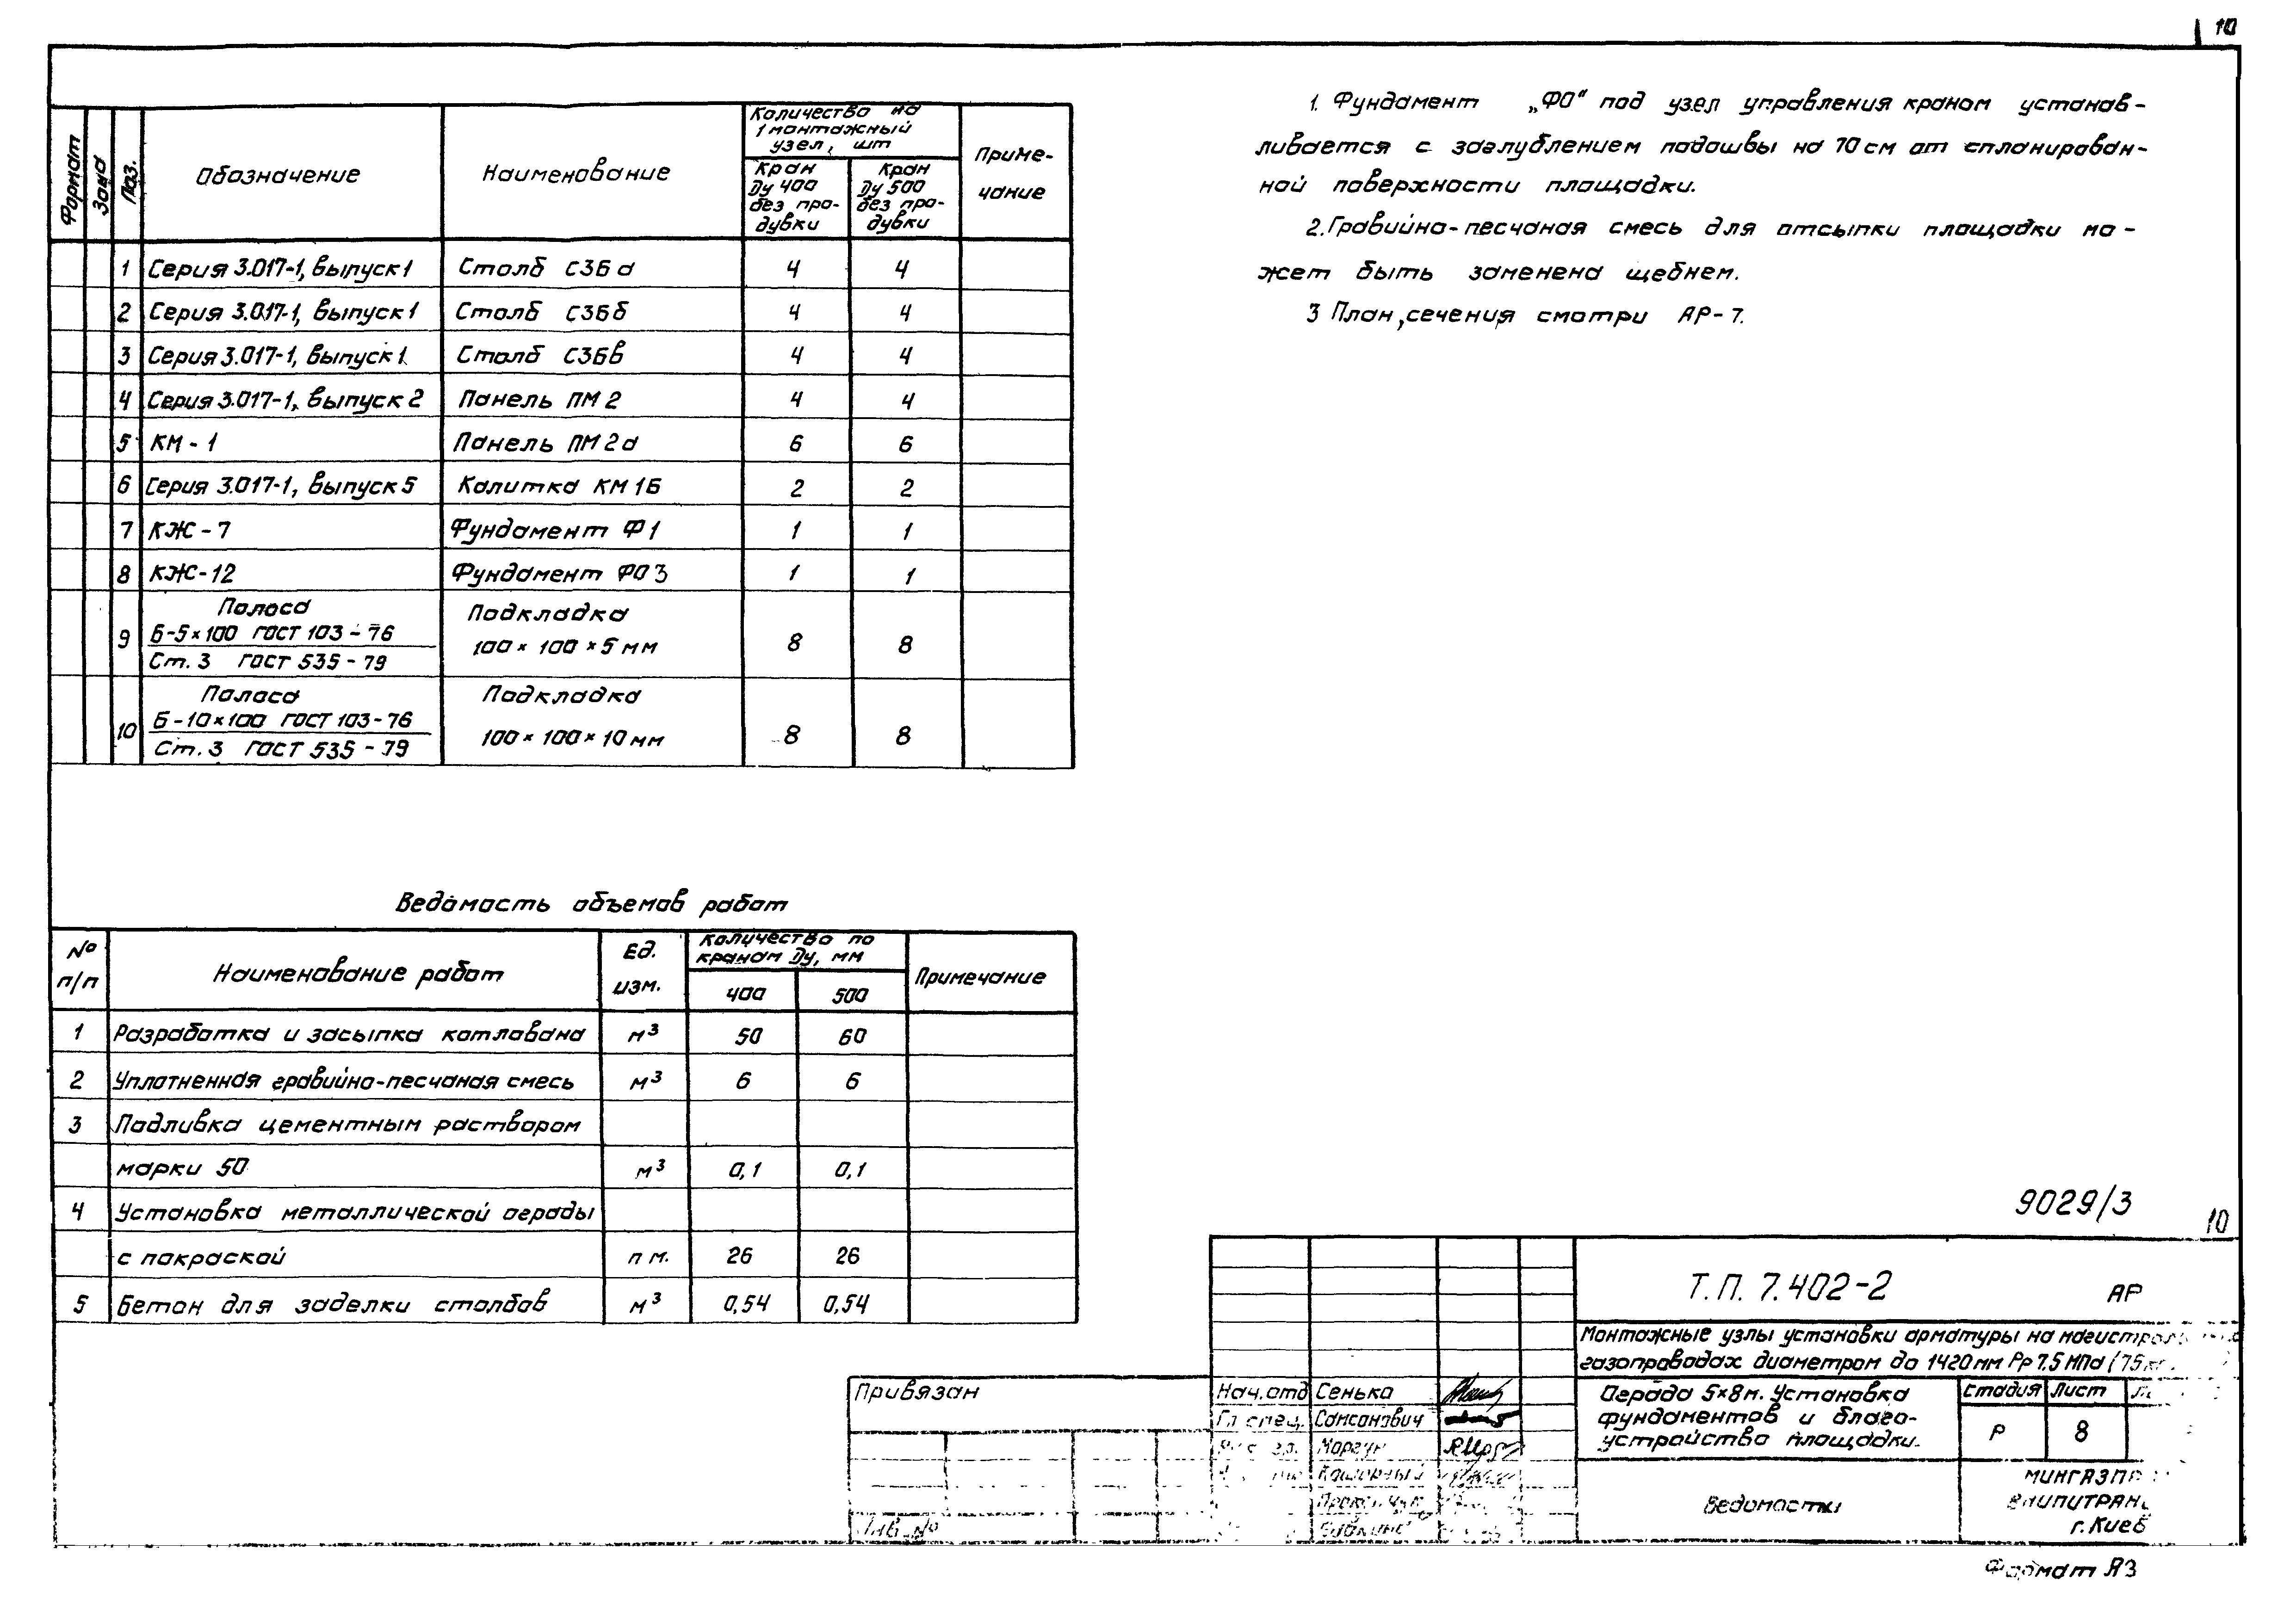 10
Формат Зона Поз. Обозначение Наименование Количество на 1 монтажный узел, шт Приме-
чание
Кран Ду 400 без про-дувки Кран Ду 500 без про-дувки
1 Серия 3.017-1, выпуск 1 Столб С36а 4 4
2 Серия 3.017-1, выпуск 1 Столб С36б 4 4
3 Серия 3.017-1, выпуск 1 Столб С36в 4 4
4 Серия 3.017-1, выпуск 2 Панель ПМ 2 4 4
5 КМ-1 Панель ПМ 2а 6 6
6 Серия 3.017-1, выпуск 5 Калитка КМ 1Б 2 2
7 КЖ-7 Фундамент Ф1 1 1
8 КЖ-12 Фундамент ФО3 1 1
Полоса Подкладка
9 Б-5×100 ГОСТ 103-76 100×100×5 мм 8 8
Ст.3 ГОСТ 535-79
Полоса Подкладка
10 Б-10×100 ГОСТ 103-76 100×100×10 мм 8 8
Ст.3 ГОСТ 535-79
1. Фундамент „ФО“ под узел управления краном установ-
ливается с заглублением подошвы на 70 см от спланирован-
ной поверхности площадки.
2. Гравийно-песчаная смесь для отсыпки площадки мо-
жет быть заменена щебнем.
3 План, сечения смотри АР-7.
Ведомость объемов работ
№ п/п Наименование работ Ед. изм. Количество по кранам Ду, мм Примечание
400 500
1 Разработка и засыпка котлована м³ 50 60
2 Уплотненная гравийно-песчаная смесь м³ 6 6
3 Подливка цементным раствором
марки 50 м³ 0,1 0,1
4 Установка металлической ограды
с покраской п м. 26 26
5 Бетон для заделки столбов м³ 0,54 0,54
9029/3
10
Т.П. 7.402-2 АР
Монтажные узлы установки арматуры на
газопроводах диаметром до 1420 мм Рр 7,5 МПа
Привязан
Нач.отд Сенько
Гл спец. Самсонович
Моргун
Инв №
Ограда 5×8 м. Установка
фундаментов и благо-
устройство площадки.
Стадия Лист
Р 8
Ведомости
г.Киев
Формат А3